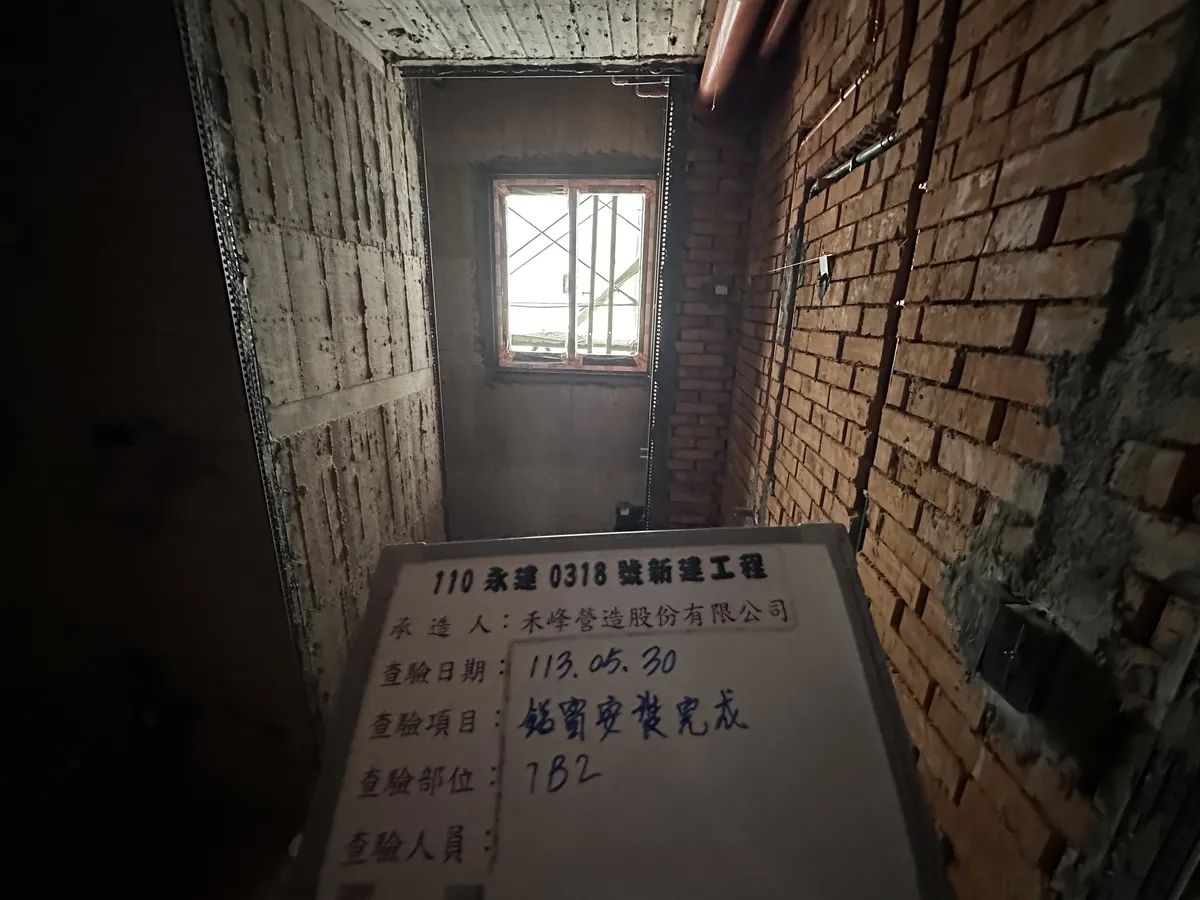 110 永建 0318 號新建工程
承造人：禾峰營造股份有限公司
查驗日期：113.05.30
查驗項目：鋁窗安裝完成
查驗部位：7B2
查驗人員：